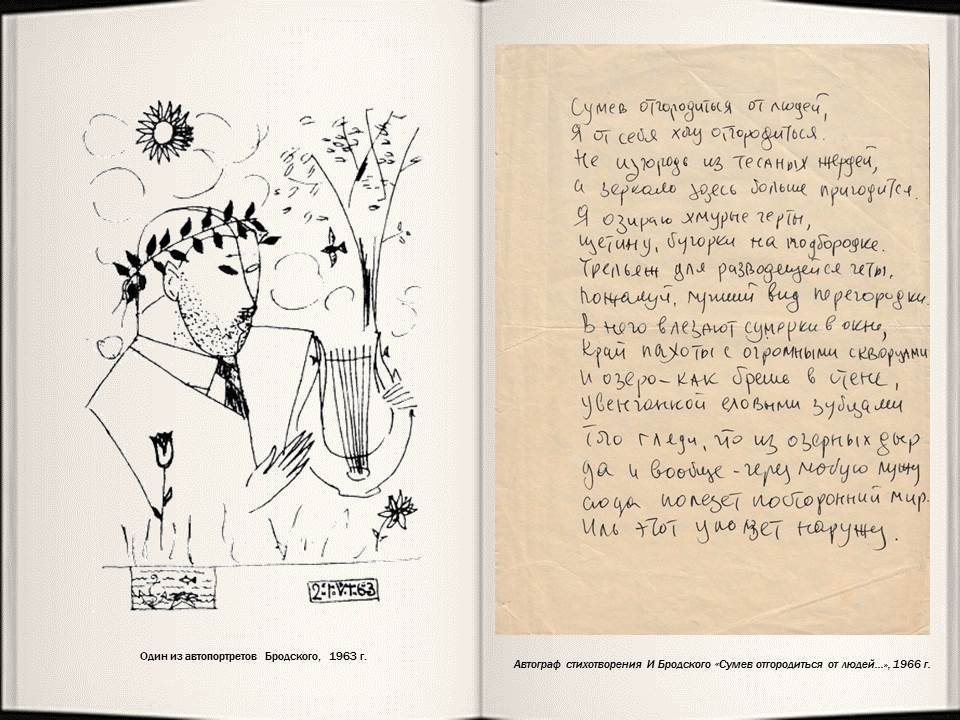 Сумев отгородиться от людей,
Я от себя хочу отгородиться.
Не изгородь из тесаных жердей,
а зеркало здесь больше пригодится.
Я озираю хмурые черты,
щетину, бугорки на подбородке.
Трельяж для разводящейся четы,
пожалуй, лучший вид перегородки.
В него влезают сумерки в окне,
край пахоты с огромными скворцами
и озеро - как брешь в стене,
увенчанной еловыми зубцами
Того гляди, что из озерных дыр
да и вообще - через любую лужу
сюда полезет посторонний мир.
Иль этот уползет наружу.
Один из автопортретов Бродского, 1963 г.
Автограф стихотворения И Бродского «Сумев отгородиться от людей...», 1966 г.